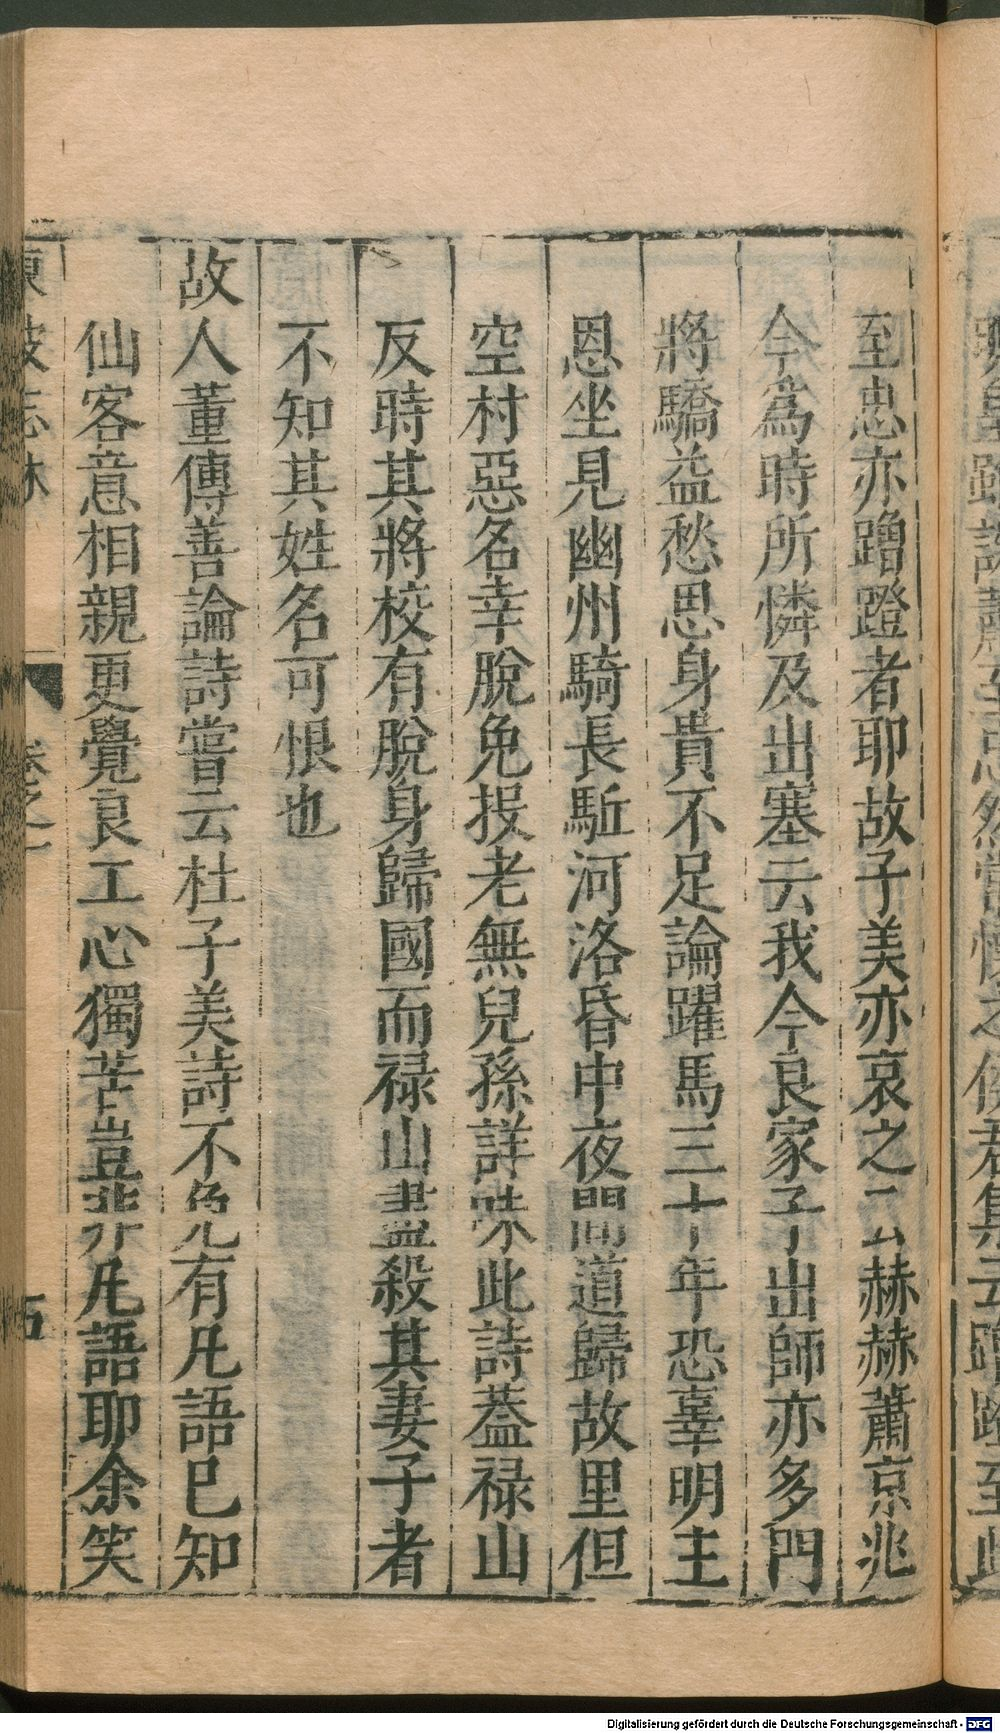 至忠亦蹭蹬者耶故子美亦哀之云赫赫蕭京兆
今爲時所憐及出塞云我今良家子出師亦多門
將驕益愁思身貴不足論躍馬三十年恐辜明主
恩坐見幽州騎長驅河洛昏中夜間道歸故里但
空村惡名幸脫免投老無兒孫詳味此詩蓋祿山
反時其將校有脫身歸國而祿山盡殺其妻子者
不知其姓名可恨也
故人董傳善論詩嘗云杜子美詩不免有凡語已知
仙客意相親更覺良工心獨苦豈非凡語耶余笑
東坡志林 卷之一 五
Digitalisierung gefördert durch die Deutsche Forschungsgemeinschaft - DFG